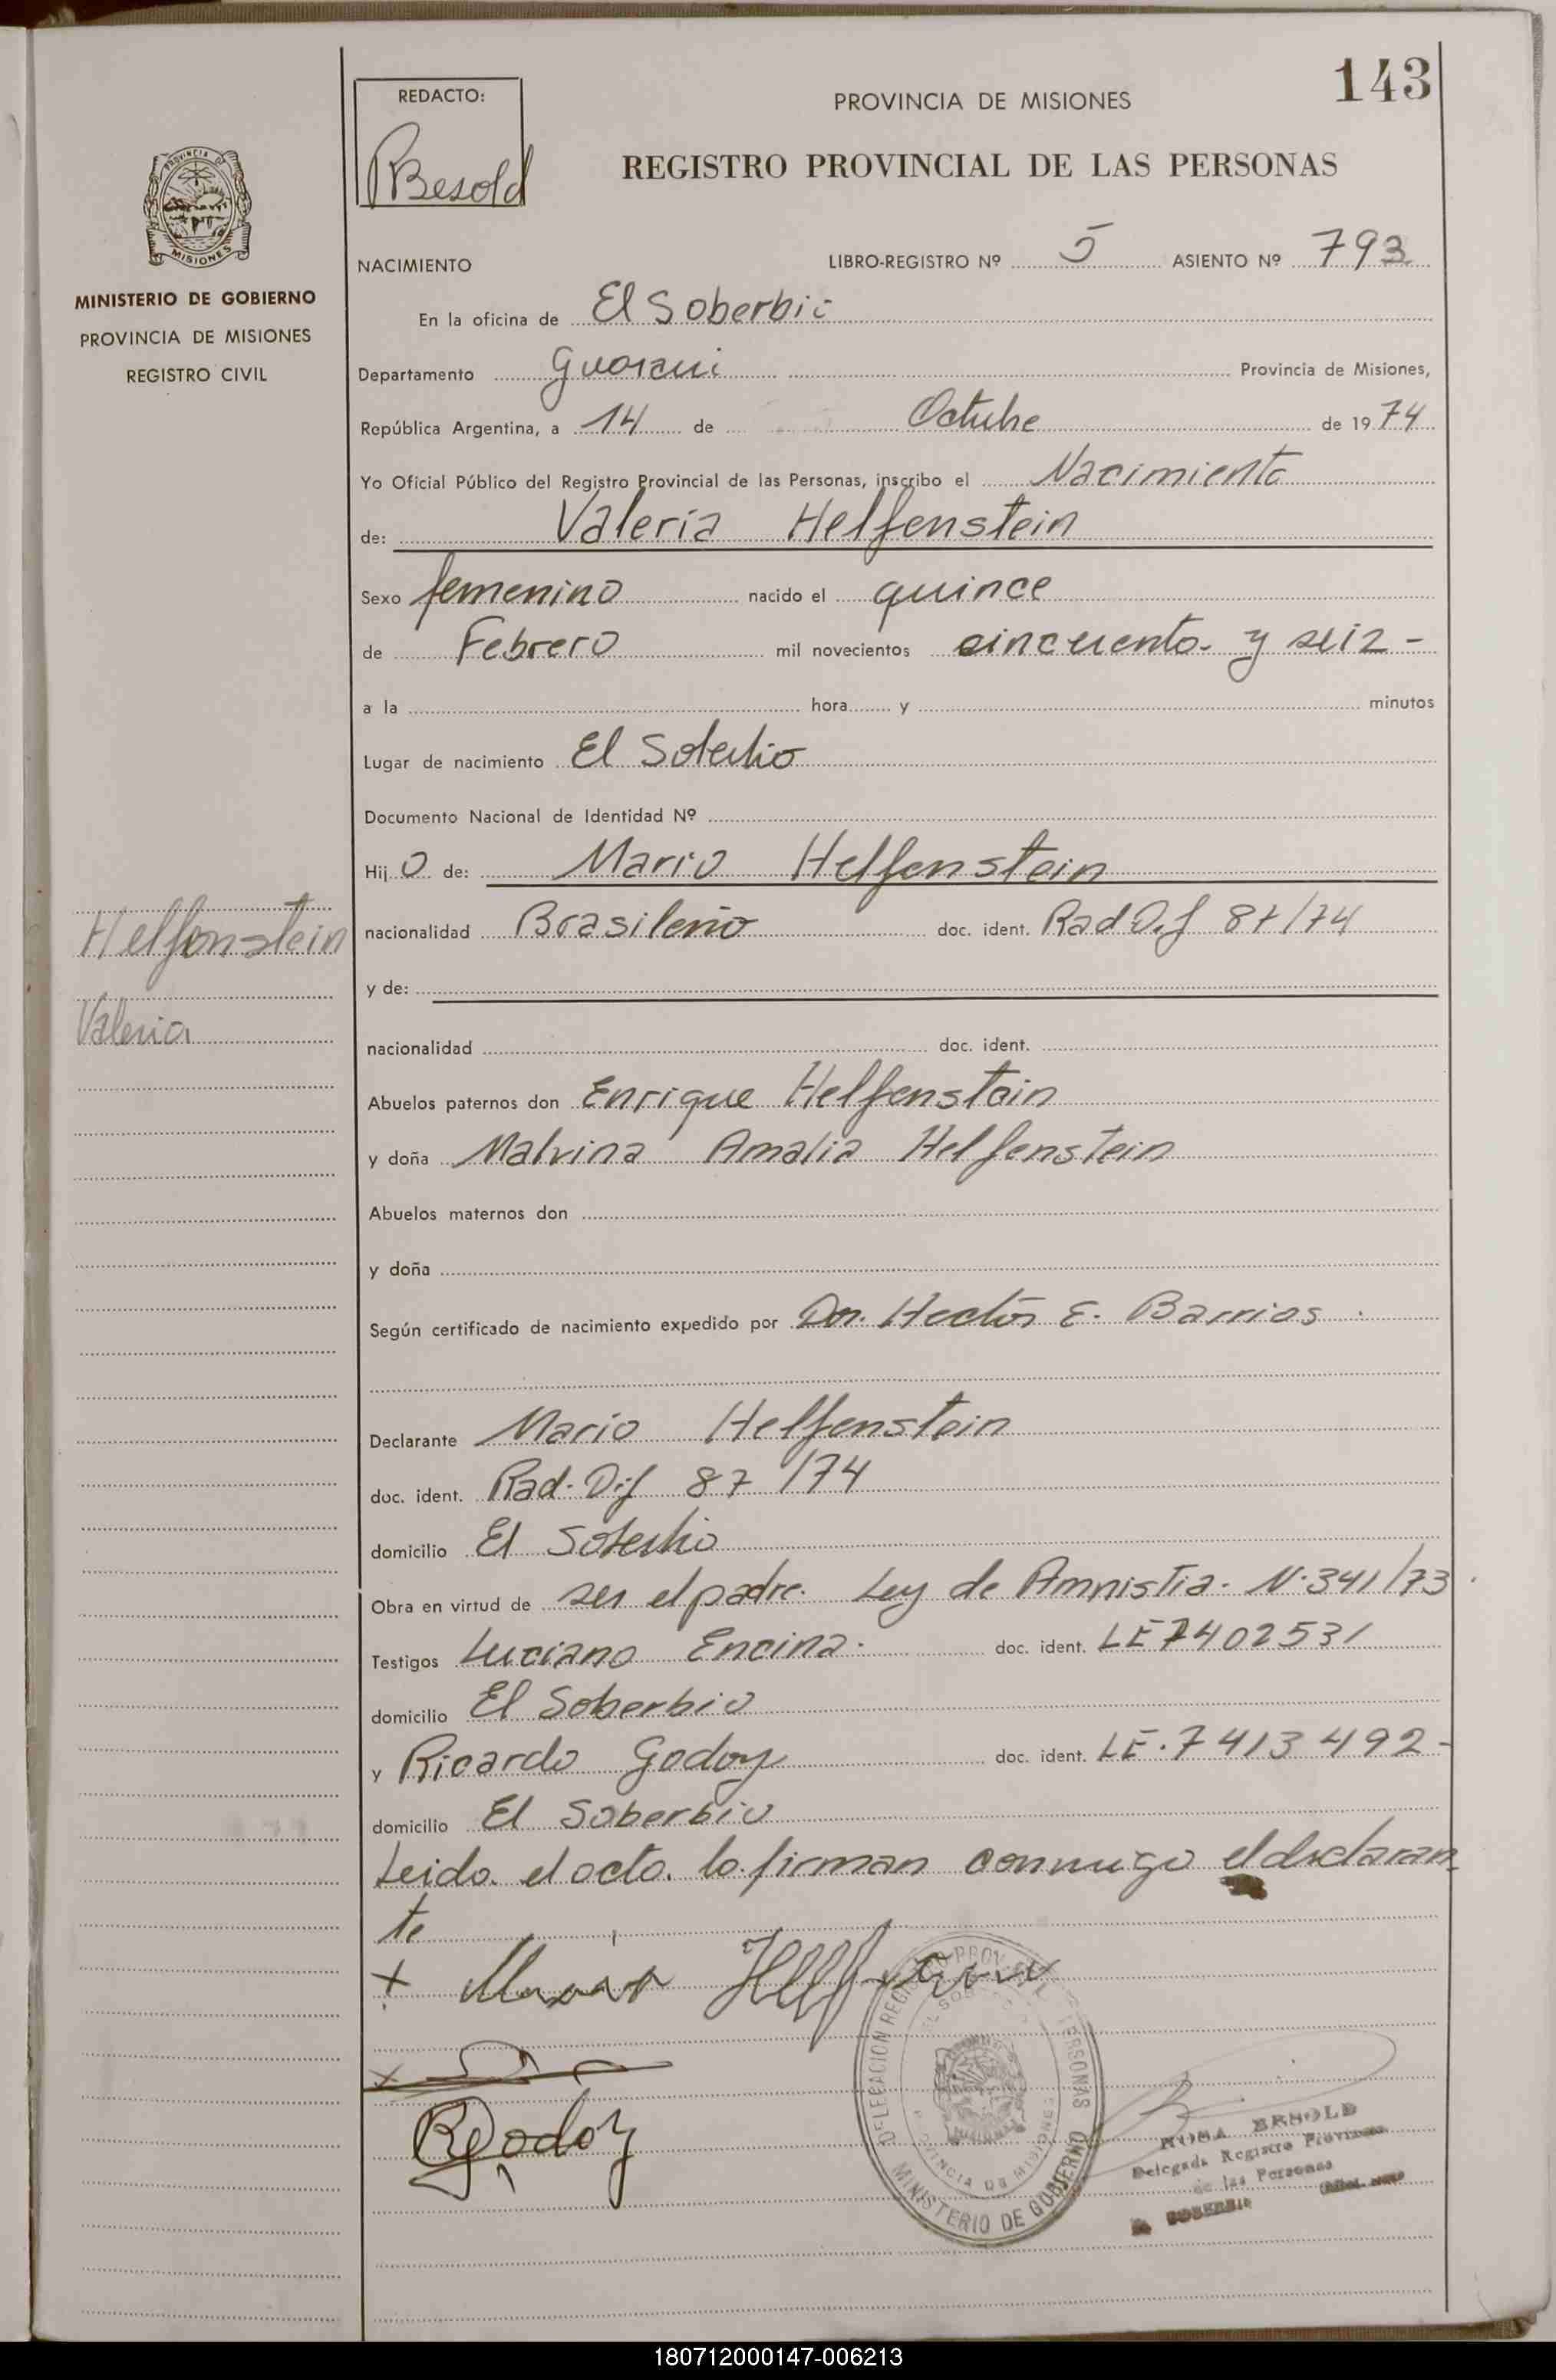 143
REDACTO:
RBesold
PROVINCIA DE MISIONES
REGISTRO PROVINCIAL DE LAS PERSONAS
PROVINCIA
MISIONES
MINISTERIO DE GOBIERNO
PROVINCIA DE MISIONES
REGISTRO CIVIL
NACIMIENTO LIBRO-REGISTRO Nº 5 ASIENTO Nº 793
En la oficina de El Soberbio
Departamento Guarani Provincia de Misiones,
República Argentina, a 14 de Octubre de 1974
Yo Oficial Público del Registro Provincial de las Personas, inscribo el Nacimiento
de: Valeria Helfenstein
Sexo femenino nacido el quince
de Febrero mil novecientos cincuenta y seiz -
a la hora y minutos
Lugar de nacimiento El Soberbio
Documento Nacional de Identidad Nº
Hij o de: Mario Helfenstein
Helfenstein
Valeria
nacionalidad Brasileño doc. ident. Rad Dif 87/74
y de:
nacionalidad doc. ident.
Abuelos paternos don Enrique Helfenstein
y doña Malvina Amalia Helfenstein
Abuelos maternos don
y doña
Según certificado de nacimiento expedido por Dr. Hector E. Barrios.
Declarante Mario Helfenstein
doc. ident. Rad. Dif 87/74
domicilio El Soberbio
Obra en virtud de ser el padre. Ley de Amnistia. N.341/73
Testigos Luciano Encina. doc. ident. LE 7402531
domicilio El Soberbio
y Ricardo Godoy doc. ident. LE. 7413492-
domicilio El Soberbio
Leido el acto. lo firman conmigo el declaran
te
x Mario Helfenstein
x
RGodoy
DELEGACION REGISTRO PROVINCIAL PERSONAS
EL SOBERBIO
PROVINCIA DE MISIONES
MINISTERIO DE GOBIERNO
ROSA BESOLD
Delegada Registro Provincial
de las Personas
EL SOBERBIO
180712000147-006213